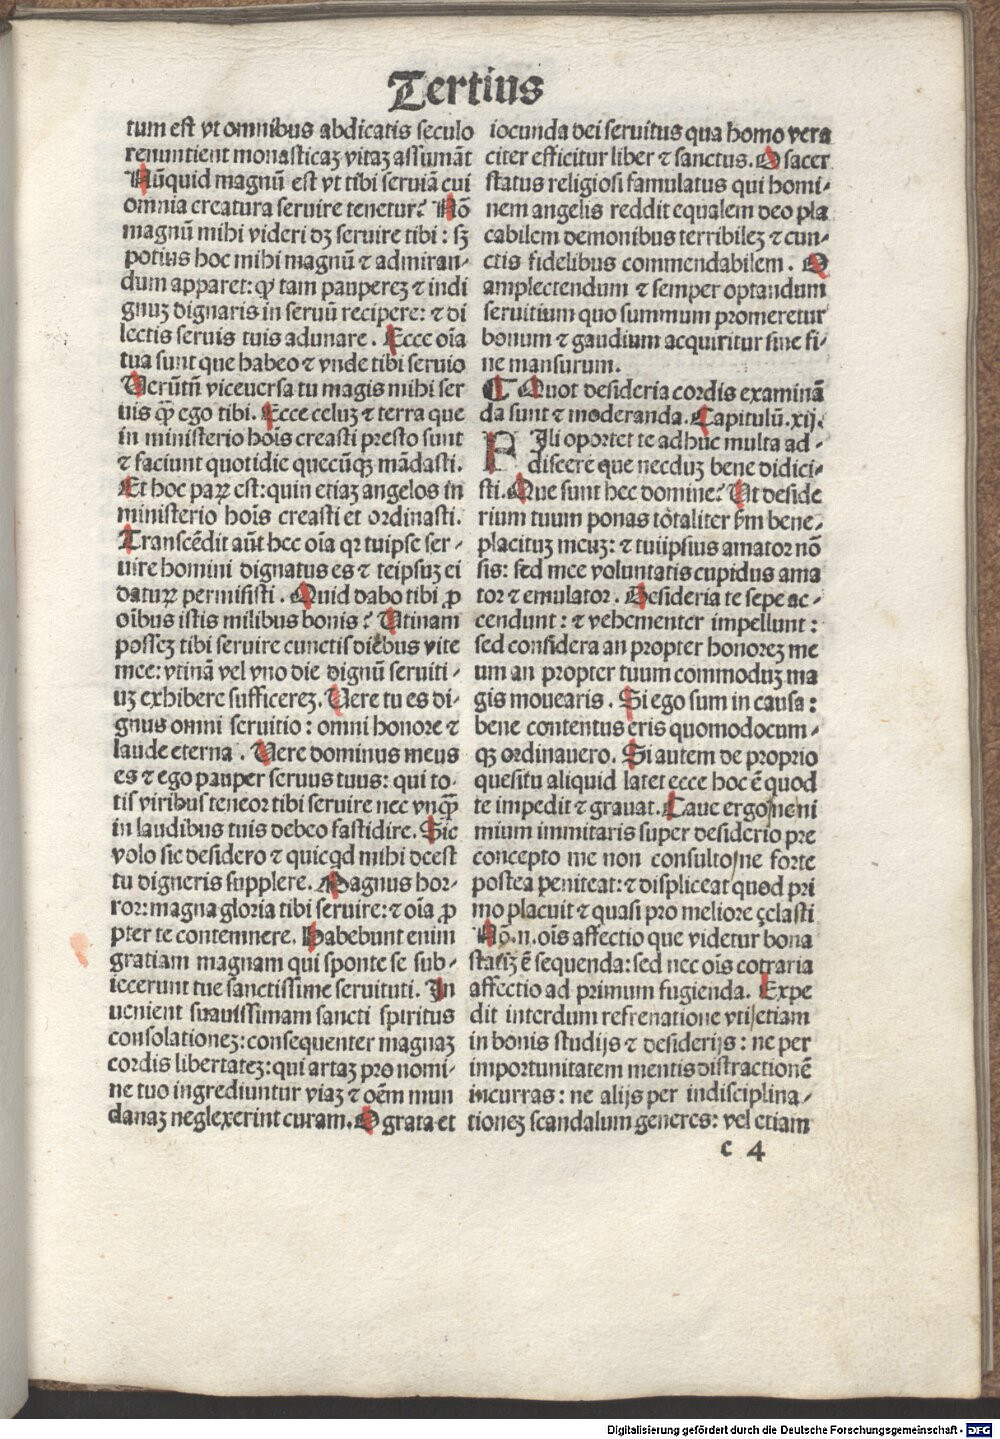 Tertius
tum est vt omnibus abdicatis seculo
renuntient monasticaꝫ vitaꝫ assumãt
Nũquid magnũ est vt tibi seruiã cui
omnia creatura seruire tenetur? Nõ
magnũ mihi videri dꝫ seruire tibi: sꝫ
potius hoc mihi magnũ ⁊ admiran-
dum apparet: ꝙ tam paupereꝫ ⁊ indi
gnuꝫ dignaris in seruũ recipere: ⁊ di
lectis seruis tuis adunare. Ecce oĩa
tua sunt que habeo ⁊ vnde tibi seruio
Uerũtñ viceuersa tu magis mihi ser
uis ꝙ̃ ego tibi. Ecce celuꝫ ⁊ terra que
in ministerio hoĩs creasti presto sunt
⁊ faciunt quotidie quecũqꝫ mãdasti.
Et hoc paꝝ est: quin etiaꝫ angelos in
ministerio hoĩs creasti et ordinasti.
Transcẽdit aũt hec oĩa qꝛ tuipse ser-
uire homini dignatus es ⁊ teipsuꝫ ei
datuꝝ permisisti. Quid dabo tibi ꝓ
oĩbus istis milibus bonis? Utinam
posseꝫ tibi seruire cunctis diebus vite
mee: vtinã vel vno die dignũ seruiti-
uꝫ exhibere sufficereꝫ. Uere tu es di-
gnus omni seruitio: omni honore ⁊
laude eterna. Uere dominus meus
es ⁊ ego pauper seruus tuus: qui to-
tis viribus teneor tibi seruire nec vnꝙ̃
in laudibus tuis debeo fastidire. Sic
volo sic desidero ⁊ quicqd mihi deest
tu digneris supplere. Magnus hor-
ror: magna gloria tibi seruire: ⁊ oĩa ꝓ
pter te contemnere. Habebunt enim
gratiam magnam qui sponte se sub-
iecerunt tue sanctissime seruituti. In
uenient suauissimam sancti spiritus
consolationeꝫ: consequenter magnaꝫ
cordis libertateꝫ: qui artaꝫ pro nomi-
ne tuo ingrediuntur viaꝫ ⁊ oẽm mun
danaꝫ neglexerint curam. O grata et
iocunda dei seruitus qua homo vera
citer efficitur liber ⁊ sanctus. O sacer
status religiosi famulatus qui homi-
nem angelis reddit equalem deo pla
cabilem demonibus terribileꝫ ⁊ cun-
ctis fidelibus commendabilem. O
amplectendum ⁊ semper optandum
seruitium quo summum promeretur
bonum ⁊ gaudium acquiritur sine fi-
ne mansurum.
¶ Quot desideria cordis examinã
da sunt ⁊ moderanda. Capitulũ. xij.
FIli oportet te adhuc multa ad-
discere que necduꝫ bene didici-
sti. Que sunt hec domine? Ut deside
rium tuum ponas totaliter ẜm bene-
placituꝫ meuꝫ: ⁊ tuiipsius amator nõ
sis: sed mee voluntatis cupidus ama
tor ⁊ emulator. Desideria te sepe ac-
cendunt: ⁊ vehementer impellunt:
sed considera an propter honoreꝫ me
um an propter tuum commoduꝫ ma
gis mouearis. Si ego sum in causa:
bene contentus eris quomodocum-
qꝫ ordinauero. Si autem de proprio
quesitu aliquid latet ecce hoc ẽ quod
te impedit ⁊ grauat. Caue ergo ne ni
mium innitaris super desiderio pre
concepto me non consulto/ne forte
postea peniteat: ⁊ displiceat quod pri
mo placuit ⁊ quasi pro meliore çelasti
Nõ.n.oĩs affectio que videtur bona
statiꝫ ẽ sequenda: sed nec oĩs cõtraria
affectio ad primum fugienda. Expe
dit interdum refrenatione vti/etiam
in bonis studijs ⁊ desiderijs: ne per
importunitatem mentis distractionẽ
incurras: ne alijs per indisciplina-
tioneꝫ scandalum generes: vel etiam
c 4
Digitalisierung gefördert durch die Deutsche Forschungsgemeinschaft - DFG